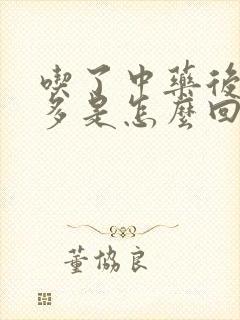 喫了中藥後
多是怎麼回
董協良